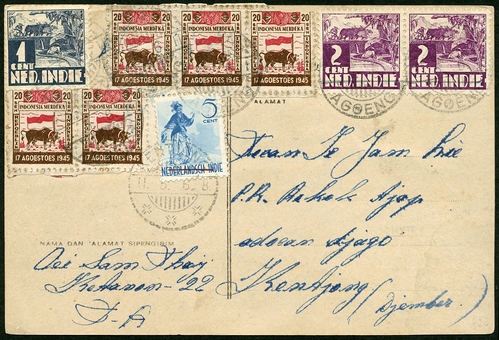 1
CENT
NED. INDIE
20 20
INDONESIA MERDEKA
17 AGOESTOES 1945
20 20
INDONESIA MERDEKA
17 AGOESTOES 1945
20 20
INDONESIA MERDEKA
17 AGOESTOES 1945
2
CENT
NED. INDIE
2
CENT
NED. INDIE
20 20
INDONESIA MERDEKA
17 AGOESTOES 1945
20 20
INDONESIA MERDEKA
17 AGOESTOES 1945
5
CENT
NEDERLANDSCH-INDIE
AGOENG
ALAMAT
Tuan Je Jam Lie
P.R.
Djago
Kentjong
(Djember)
NAMA DAN ALAMAT SIPENGIRIM
Oei Sam
22
T-A